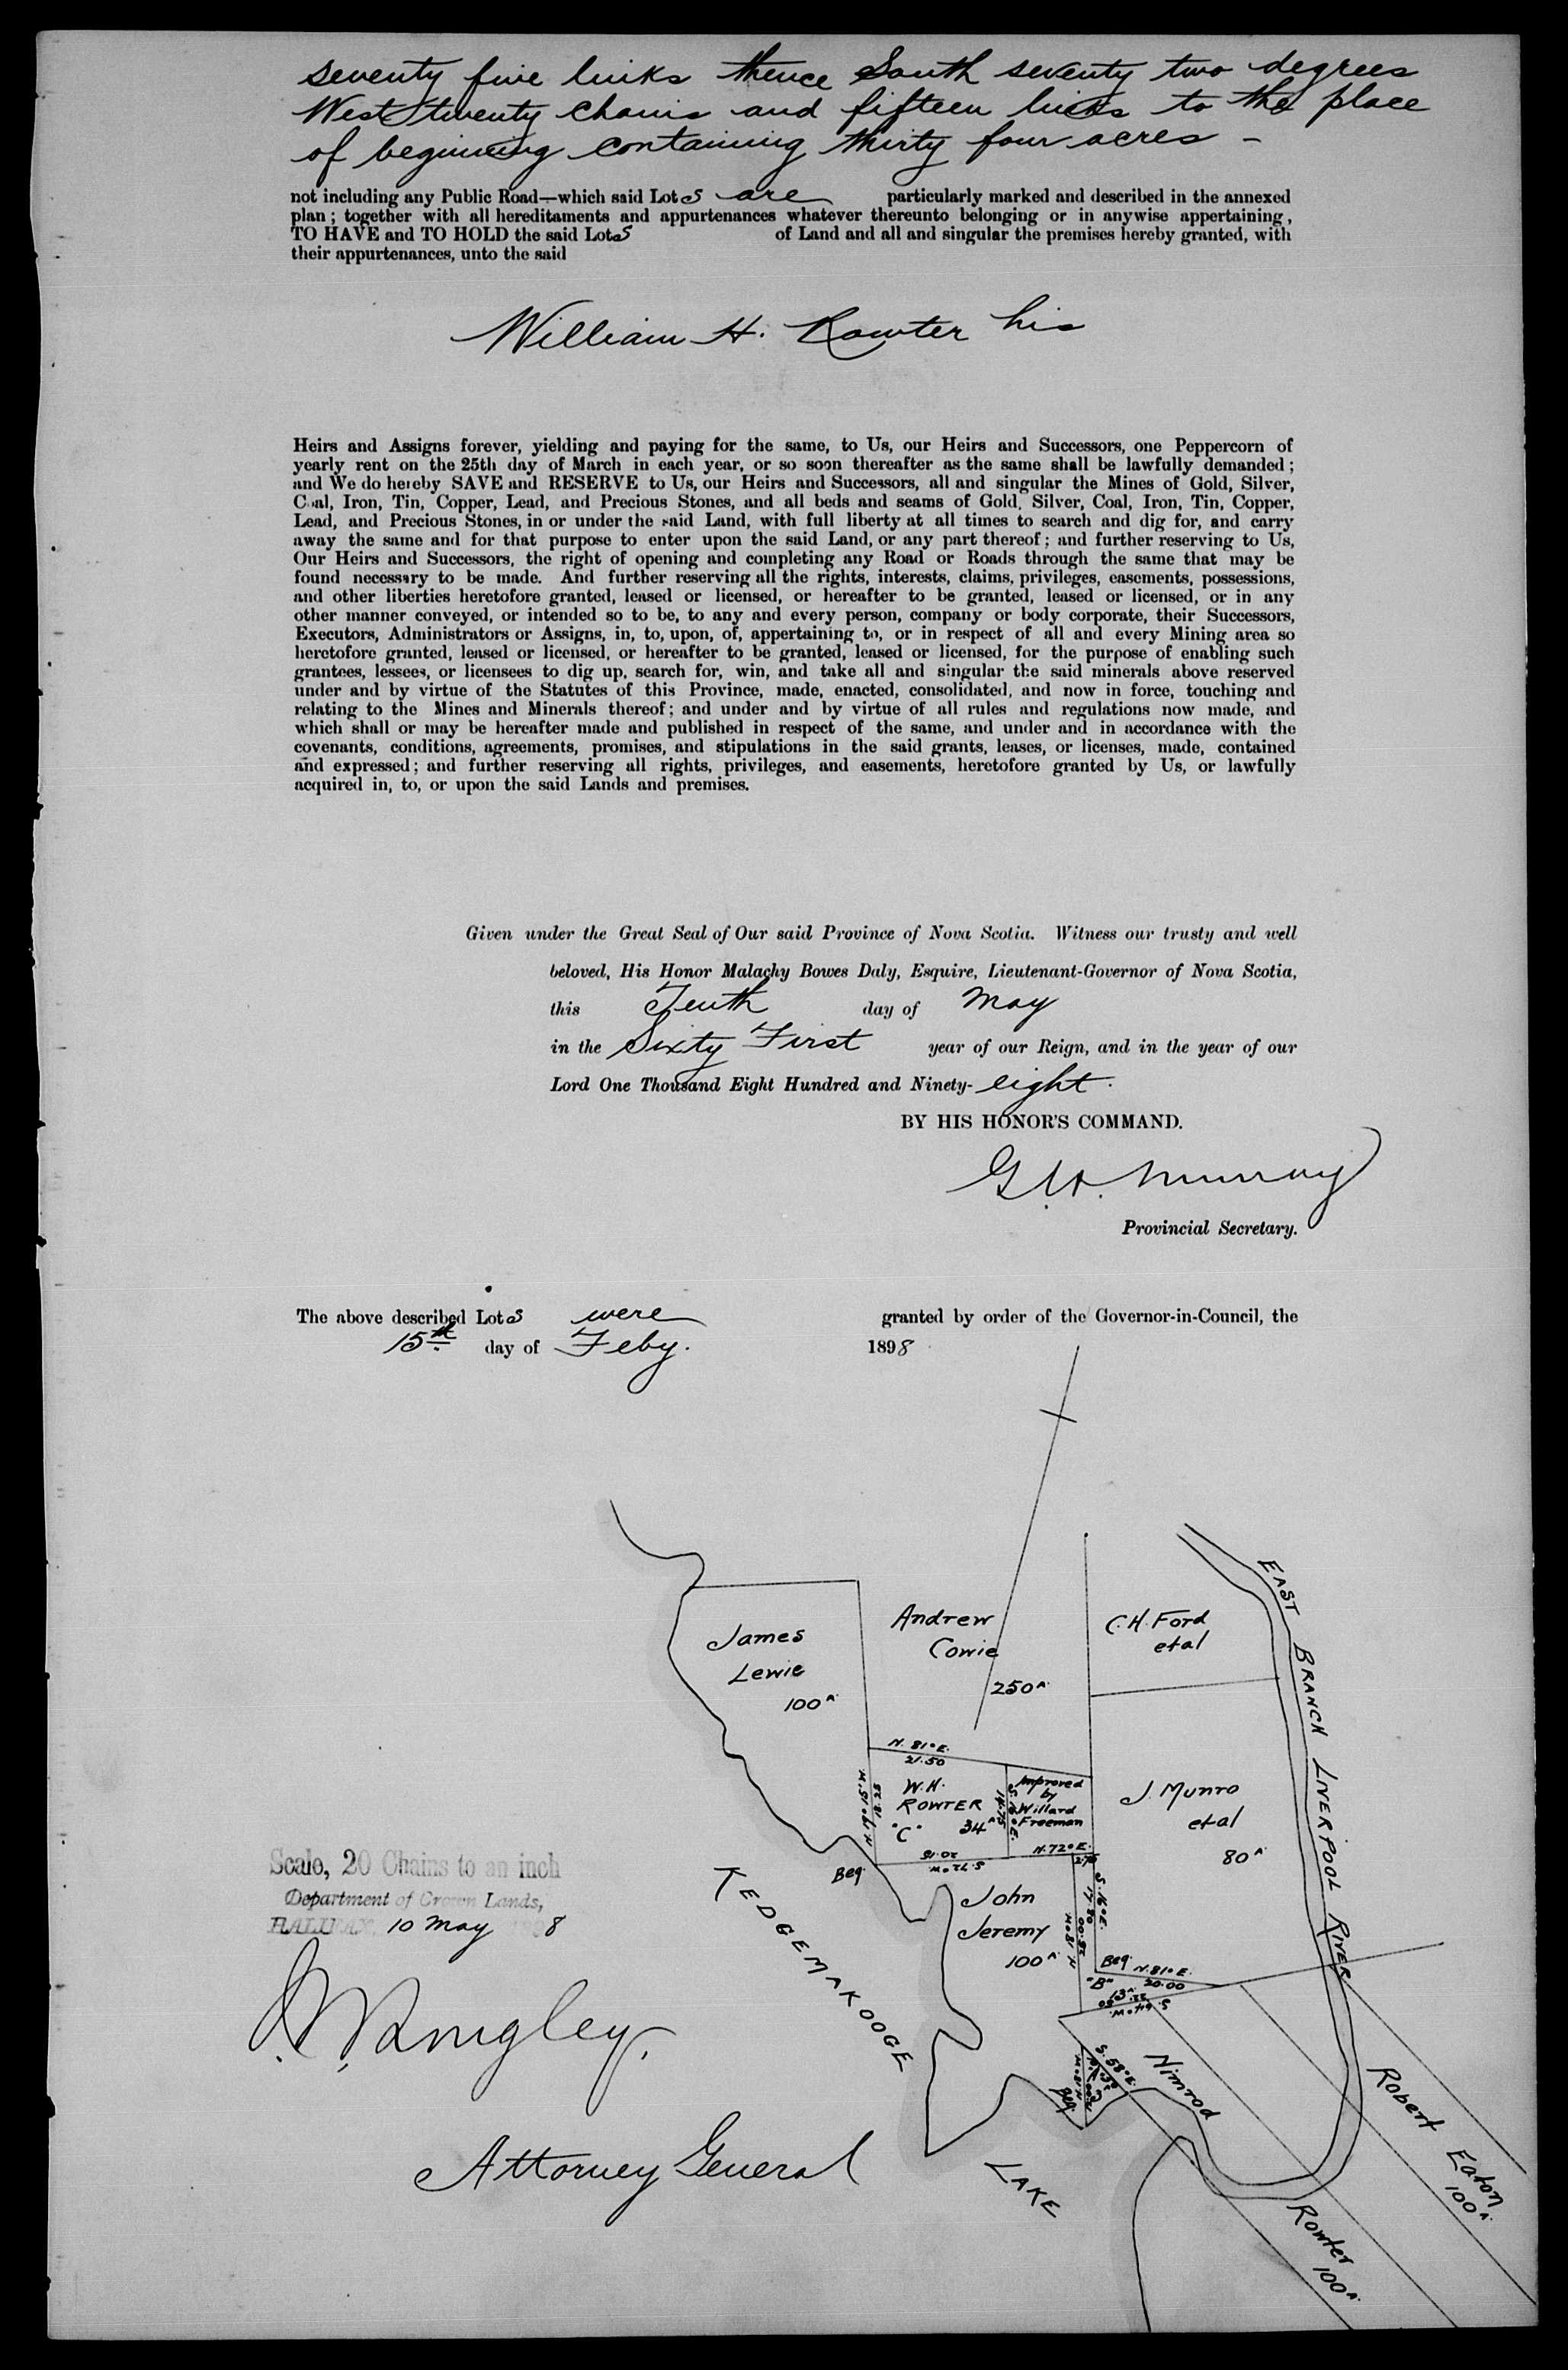 seventy five links thence South seventy two degrees
West twenty chains and fifteen links to the place
of beginning containing thirty four acres -
not including any Public Road—which said Lots are particularly marked and described in the annexed
plan; together with all hereditaments and appurtenances whatever thereunto belonging or in anywise appertaining,
TO HAVE and TO HOLD the said Lots of Land and all and singular the premises hereby granted, with
their appurtenances, unto the said
William H. Rowter his
Heirs and Assigns forever, yielding and paying for the same, to Us, our Heirs and Successors, one Peppercorn of
yearly rent on the 25th day of March in each year, or so soon thereafter as the same shall be lawfully demanded;
and We do hereby SAVE and RESERVE to Us, our Heirs and Successors, all and singular the Mines of Gold, Silver,
Coal, Iron, Tin, Copper, Lead, and Precious Stones, and all beds and seams of Gold, Silver, Coal, Iron, Tin, Copper,
Lead, and Precious Stones, in or under the said Land, with full liberty at all times to search and dig for, and carry
away the same and for that purpose to enter upon the said Land, or any part thereof; and further reserving to Us,
Our Heirs and Successors, the right of opening and completing any Road or Roads through the same that may be
found necessary to be made. And further reserving all the rights, interests, claims, privileges, easements, possessions,
and other liberties heretofore granted, leased or licensed, or hereafter to be granted, leased or licensed, or in any
other manner conveyed, or intended so to be, to any and every person, company or body corporate, their Successors,
Executors, Administrators or Assigns, in, to, upon, of, appertaining to, or in respect of all and every Mining area so
heretofore granted, leased or licensed, or hereafter to be granted, leased or licensed, for the purpose of enabling such
grantees, lessees, or licensees to dig up, search for, win, and take all and singular the said minerals above reserved
under and by virtue of the Statutes of this Province, made, enacted, consolidated, and now in force, touching and
relating to the Mines and Minerals thereof; and under and by virtue of all rules and regulations now made, and
which shall or may be hereafter made and published in respect of the same, and under and in accordance with the
covenants, conditions, agreements, promises, and stipulations in the said grants, leases, or licenses, made, contained
and expressed; and further reserving all rights, privileges, and easements, heretofore granted by Us, or lawfully
acquired in, to, or upon the said Lands and premises.
Given under the Great Seal of Our said Province of Nova Scotia. Witness our trusty and well
beloved, His Honor Malachy Bowes Daly, Esquire, Lieutenant-Governor of Nova Scotia,
this Tenth day of May
in the Sixty First year of our Reign, and in the year of our
Lord One Thousand Eight Hundred and Ninety-eight.
BY HIS HONOR'S COMMAND.
G. H. Murray
Provincial Secretary.
The above described Lots were granted by order of the Governor-in-Council, the
15th day of Feby. 1898
EAST BRANCH LIVERPOOL RIVER
James
Lewie
100A.
Andrew
Cowie
250A.
C.H. Ford
et al
N. 81° E.
21.50
W.H.
ROWTER
"C" 34A
N. 19° 15' W.
18.25
S. 18° E.
14.75
Improved
by
Willard
Freeman
J. Munro
et al
80A.
20.15
S. 72° W.
N. 72° E.
2.75
Beg.
John
Jeremy
100A.
S. 16° E.
17.50
N. 18° W.
Beg. N. 81° E.
20.00
"B"
13A.
S. 64° W.
S. 58° E.
N. 18° W.
Beg.
KEDGEMAKOOGE
LAKE
Nimrod
Rowter
100A.
Robert Eaton
100A.
Scale, 20 Chains to an inch
Department of Crown Lands,
HALIFAX 10 May 1898
J. W. Longley.
Attorney General